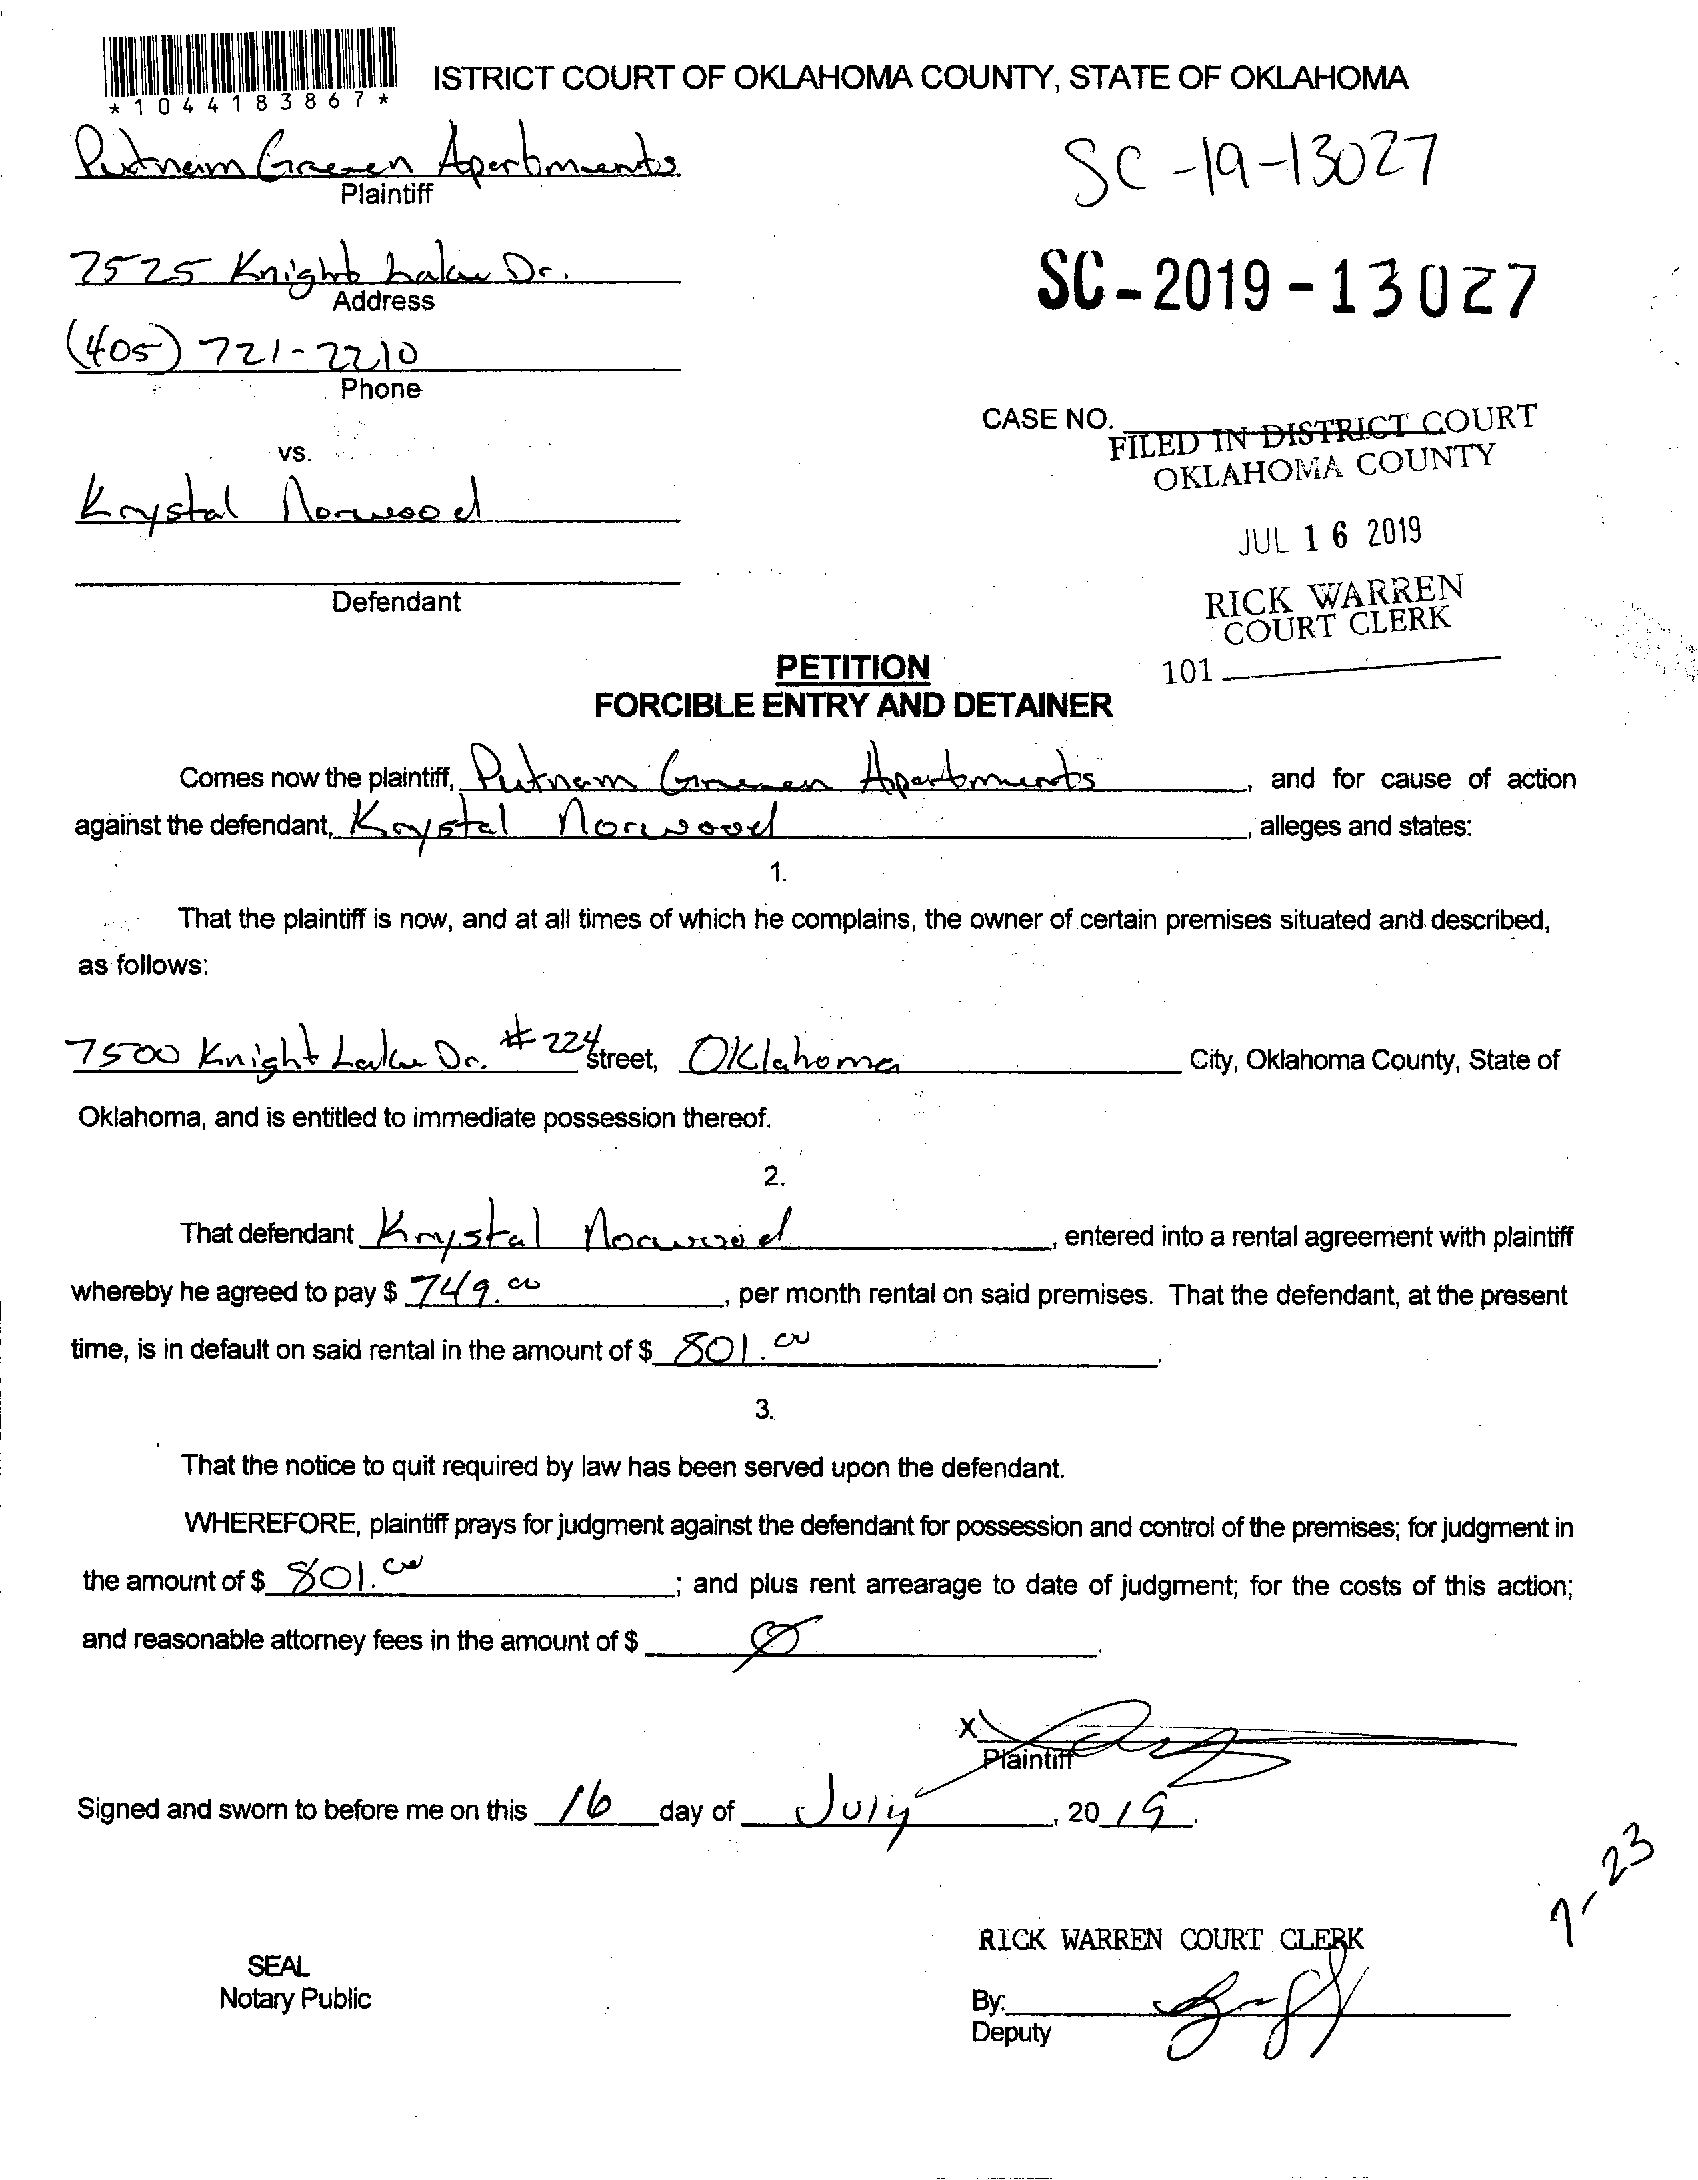 *1044183867*
ISTRICT COURT OF OKLAHOMA COUNTY, STATE OF OKLAHOMA
Putnam Green Apartments
Plaintiff
SC-19-13027
7525 Knight Lake Dr.
Address
SC-2019-13027
(405) 721-2210
Phone
CASE NO.
FILED IN DISTRICT COURT
OKLAHOMA COUNTY
vs.
Krystal Norwood
JUL 16 2019
Defendant
RICK WARREN
COURT CLERK
101
PETITION
FORCIBLE ENTRY AND DETAINER
Comes now the plaintiff, Putnam Green Apartments, and for cause of action
against the defendant, Krystal Norwood, alleges and states:
1.
That the plaintiff is now, and at all times of which he complains, the owner of certain premises situated and described,
as follows:
7500 Knight Lake Dr. #224 street, Oklahoma City, Oklahoma County, State of
Oklahoma, and is entitled to immediate possession thereof.
2.
That defendant Krystal Norwood, entered into a rental agreement with plaintiff
whereby he agreed to pay $ 749.00, per month rental on said premises. That the defendant, at the present
time, is in default on said rental in the amount of $ 801.00.
3.
That the notice to quit required by law has been served upon the defendant.
WHEREFORE, plaintiff prays for judgment against the defendant for possession and control of the premises; for judgment in
the amount of $ 801.00; and plus rent arrearage to date of judgment; for the costs of this action;
and reasonable attorney fees in the amount of $ Ø.
X
Plaintiff
Signed and sworn to before me on this 16 day of July, 2019.
7-23
RICK WARREN COURT CLERK
SEAL
Notary Public
By:
Deputy